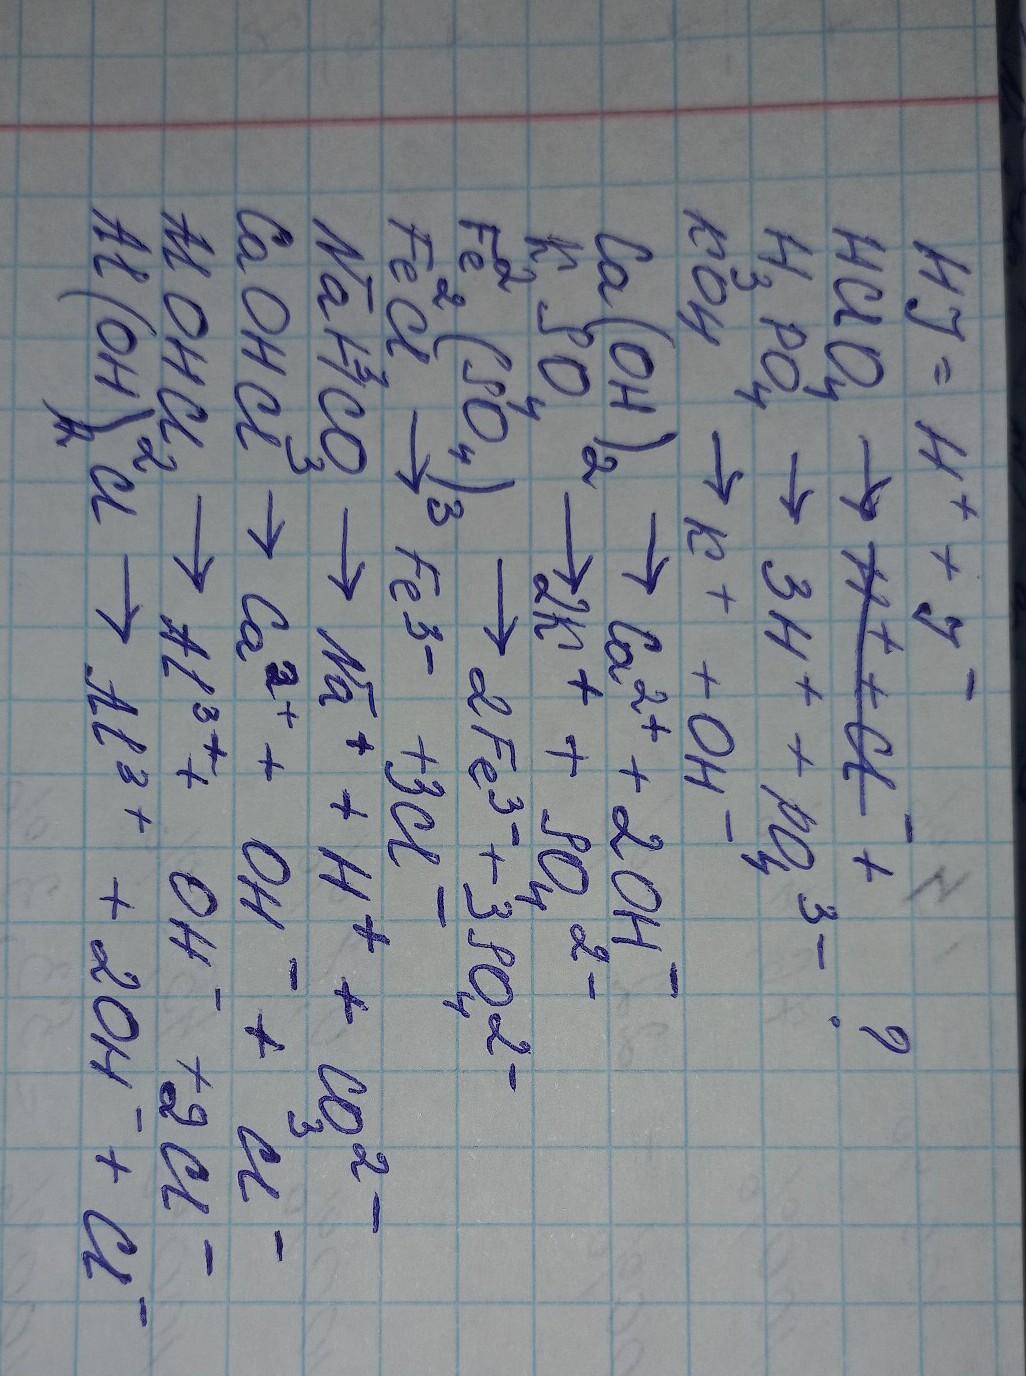 HJ = H⁺ + J⁻
HClO₄ → H⁺ + Cl⁻ + ?
H₃PO₄ → 3H⁺ + PO₄³⁻.
KOH → K⁺ + OH⁻
Ca(OH)₂ → Ca²⁺ + 2OH⁻
K₂SO₄ → 2K⁺ + SO₄²⁻
Fe₂(SO₄)₃ → 2Fe³⁻ + 3SO₄²⁻
FeCl₃ → Fe³⁻ + 3Cl⁻
NaHCO₃ → Na⁺ + H⁺ + CO₃²⁻
CaOHCl → Ca²⁺ + OH⁻ + Cl⁻
AlOHCl₂ → Al³⁺ + OH⁻ + 2Cl⁻
Al(OH)₂Cl → Al³⁺ + 2OH⁻ + Cl⁻